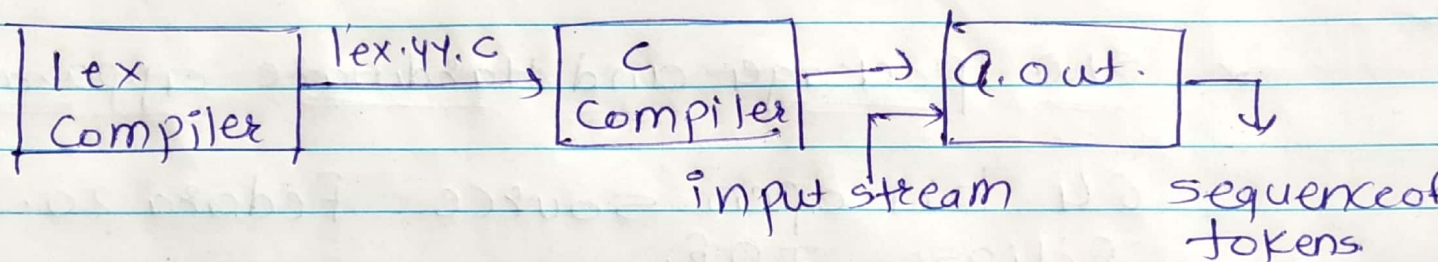 lex
compiler
lex.yy.c
C
compiler
a.out.
input stream
sequence of
tokens.